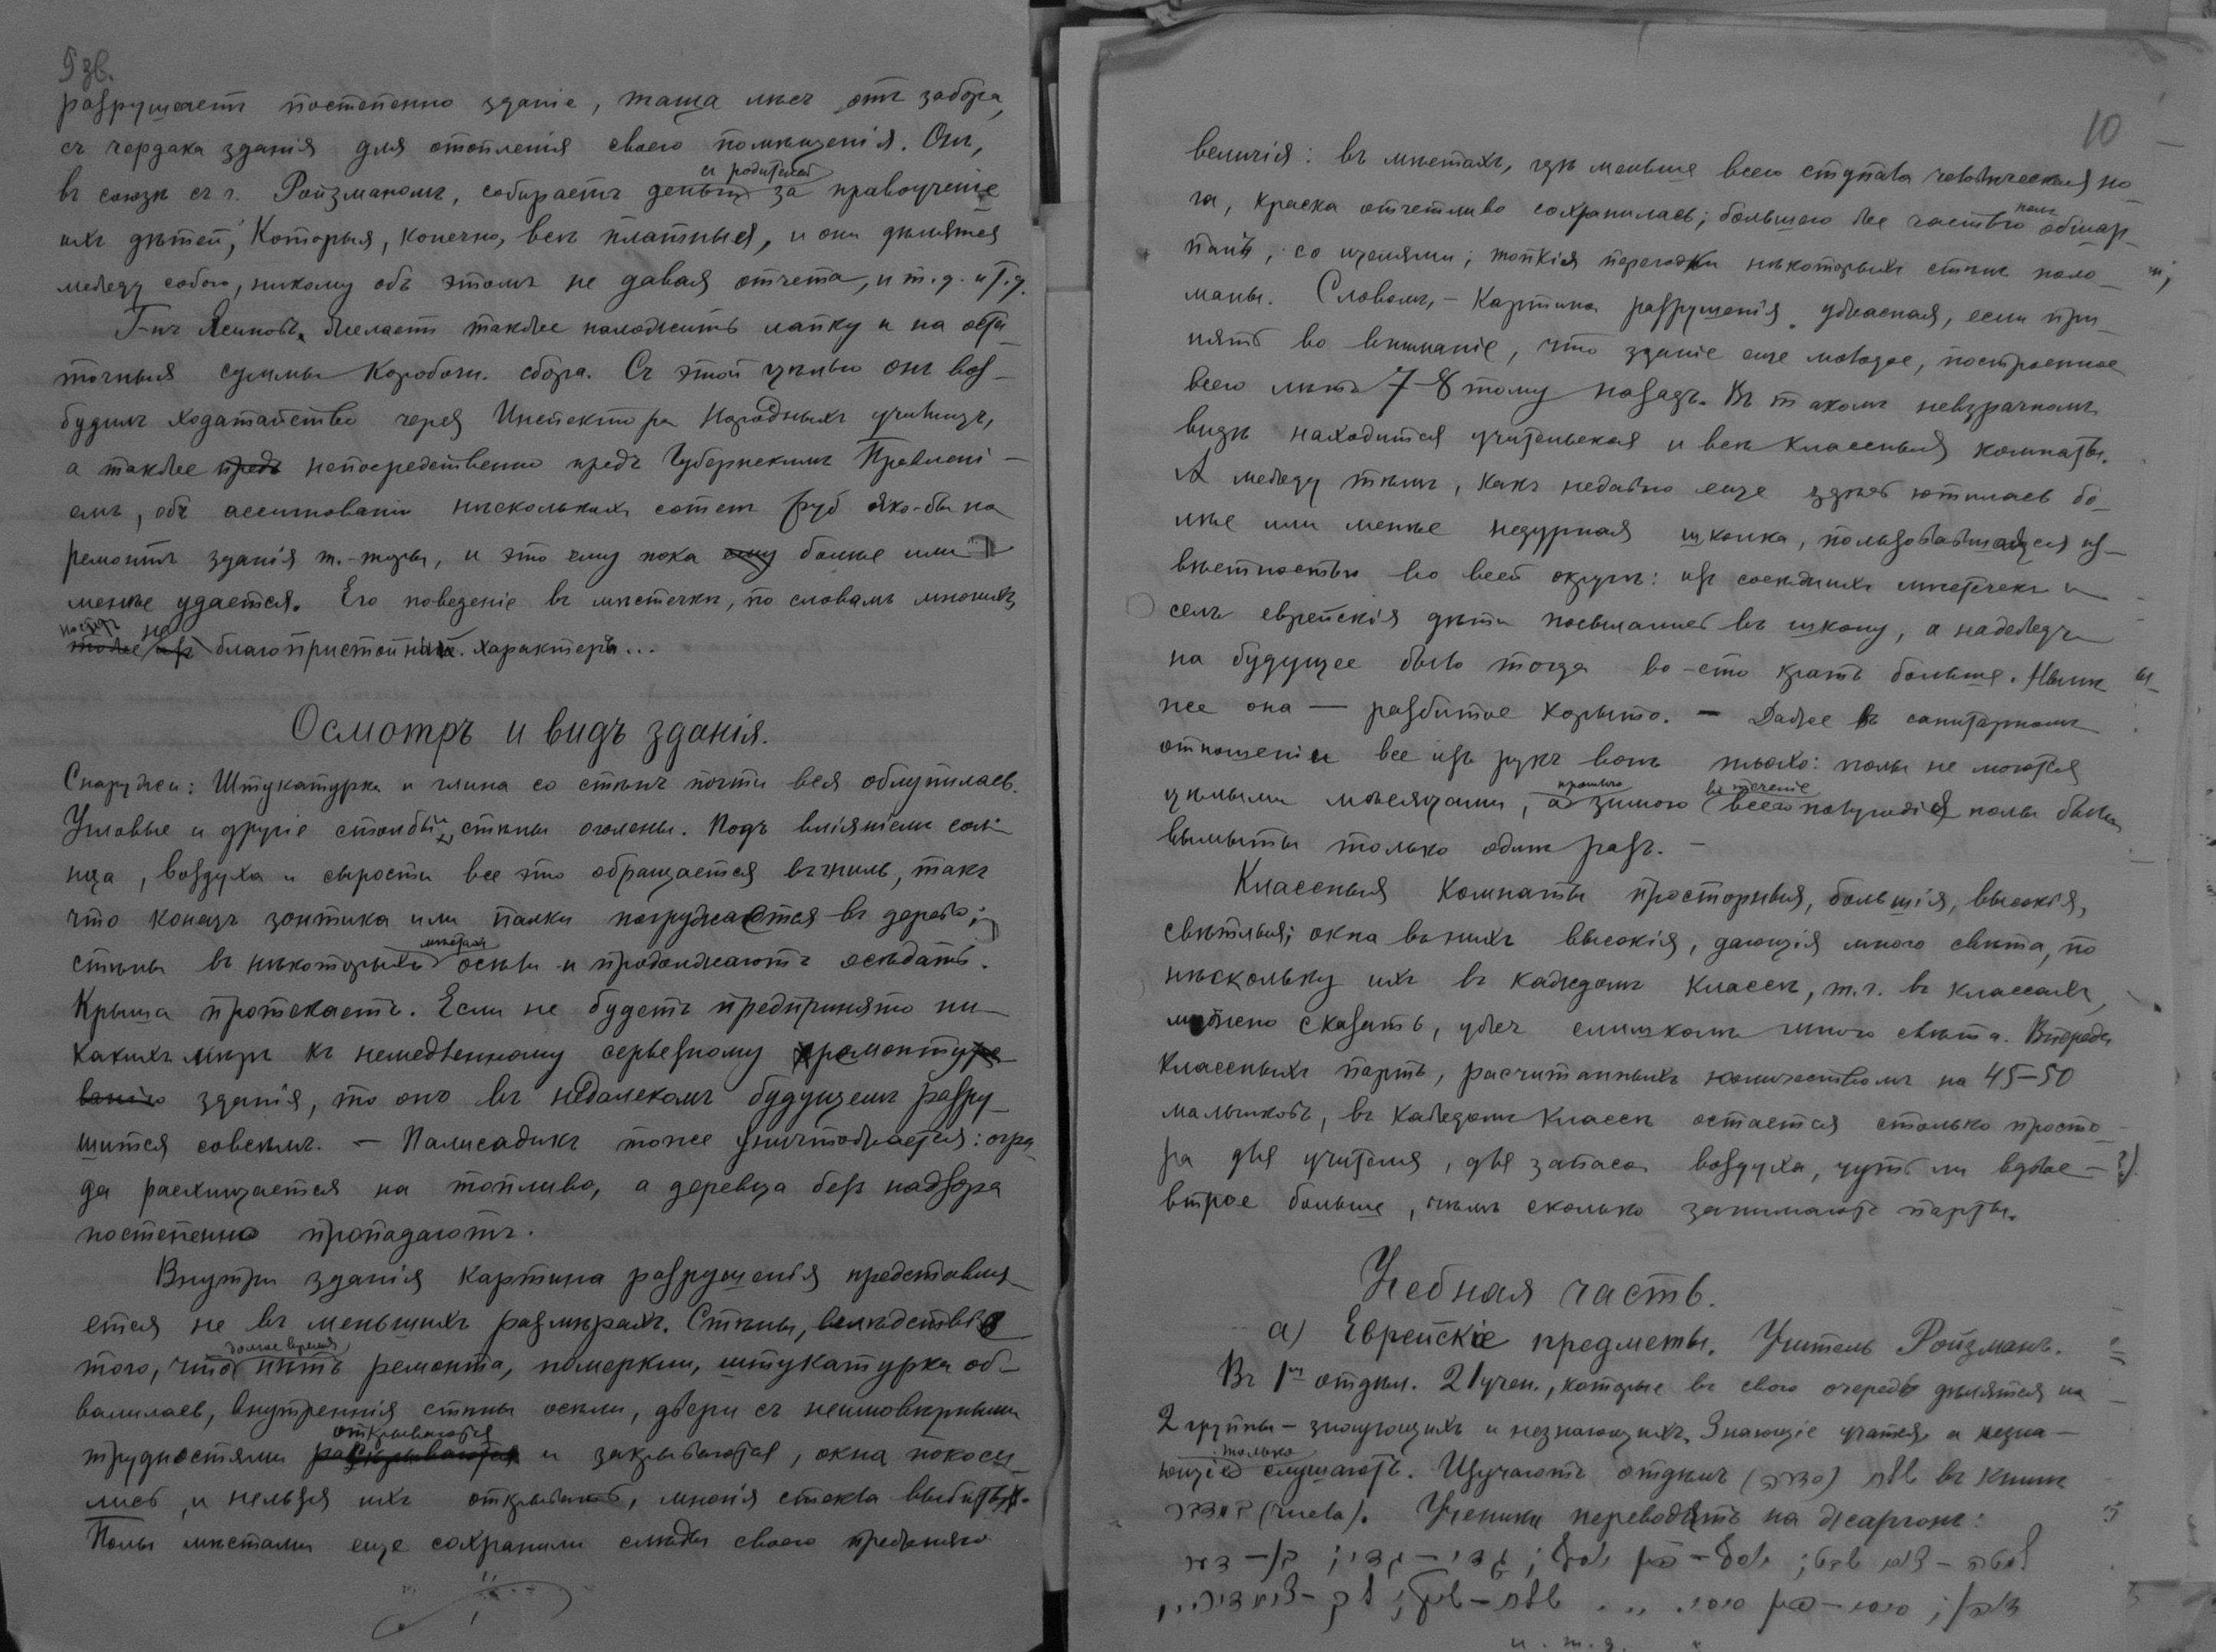 9 зв.
разрушаетъ постепенно зданіе, таща лѣсъ отъ забора,
съ чердака зданія для отопленія своего помѣщенія. Онъ,
въ союзѣ съ г. Ройзманомъ, собираетъ деньги съ родителей за правоученіе
ихъ дѣтей, которыя, конечно, всѣ платныя, и они дѣлятся
между собою, никому объ этомъ не давая отчета, и т. д. и т. д.
Г-нъ Ясиновъ желаетъ также наложить лапку и на оста-
точныя суммы коробочн. сбора. Съ этой цѣлью онъ воз-
будилъ ходатайство черезъ Инспектора Народныхъ училищъ,
а также предъ непосредственно предъ Губернскимъ Правлені-
емъ, объ ассигнованіи нѣсколькихъ сотенъ руб яко-бы на
ремонтъ зданія т.-торы, и это ему пока ему болѣе или
менѣе удается. Его поведеніе въ мѣстечкѣ, по словамъ многихъ,
тоже не благопристойн. характера...
Осмотръ и видъ зданія.
Снаружи: Штукатурка и глина со стѣнъ почти вся облупилась.
Угловые и другіе столбы стѣны оголены. Подъ вліяніемъ солн-
нца, воздуха и сырости все это обращается въ гниль, такъ
что конецъ зонтика или палки погружается въ дерево;
стѣны въ нѣкоторыхъ мѣстахъ осѣли и продолжаютъ осѣдать.
Крыша протекаетъ. Если не будетъ предпринято ни-
какихъ мѣръ къ немедленному серьезному ремонту
зданія, то оно въ недалекомъ будущемъ разру-
шится совсѣмъ. — Палисадникъ тоже уничтожается: огра-
да расхищается на топливо, а деревца безъ надзора
постепенно пропадаютъ.
Внутри зданія картина разрушенія представля-
ется не въ меньшихъ размѣрахъ. Стѣны, вслѣдствіе
того, что долгое время нѣтъ ремонта, померкли, штукатурка об-
валилась, внутреннія стѣны осѣли, двери съ неимовѣрными
трудностями открываются и закрываются, окна покоси-
лись, и нельзя ихъ открывать, многія стекла выбиты.
Полы мѣстами еще сохранили слѣды своего прежняго
10
величія: въ мѣстахъ, гдѣ меньше всего ступала человѣческая но-
га, краска отчетливо сохранилась; большею же частью полъ обшар-
панъ, со щелями; тонкія перегодки нѣкоторыхъ стѣнъ поло-
маны. Словомъ, — картина разрушенія ужасная, если при-
нять во вниманіе, что зданіе еще молодое, построенное
всего лѣтъ 7-8 тому назадъ. Въ такомъ невзрачномъ
видѣ находится учительская и всѣ классныя комнаты.
А между тѣмъ, какъ недавно еще здѣсь ютилась бо-
лѣе или менѣе недурная школка, пользовавшаяся из-
вѣстностью во всей округѣ: изъ сосѣднихъ мѣстечекъ и
селъ еврейскія дѣти посылались въ школу, а надежды
на будущее было тогда во-сто кратъ больше. Нынѣ
же она — разбитое корыто. — Далѣе въ санитарномъ
отношеніи все изъ рукъ вонъ плохо: полы не моются
цѣлыми мѣсяцами, а прошлою зимою въ теченіе всего полугодія полы были
вымыты только одинъ разъ. —
Классныя комнаты просторныя, большія, высокія,
свѣтлыя; окна въ нихъ высокія, дающія много свѣта, по
нѣскольку ихъ въ каждомъ классѣ, т. ч. въ классахъ,
можно сказать, ужъ слишкомъ много свѣта. Впереди
классныхъ партъ, расчитанныхъ количествомъ на 45-50
мальчиковъ, въ каждомъ классѣ остается столько просто-
ра для учителя, для запаса воздуха, чуть ли вдвое-
втрое больше, чѣмъ сколько занимаютъ парты.
Учебная часть.
а) Еврейскіе предметы. Учитель Ройзманъ.
Въ 1мъ отдѣл. 21 учен., которые въ свою очередь дѣлятся на
2 группы — знающихъ и незнающихъ. Знающіе учатся, а незна-
ющіе только слушаютъ. Изучаютъ отдѣлъ (סדרה) שלח въ книгѣ
(числа). Ученики переводятъ на жаргонъ:
и. т. д.